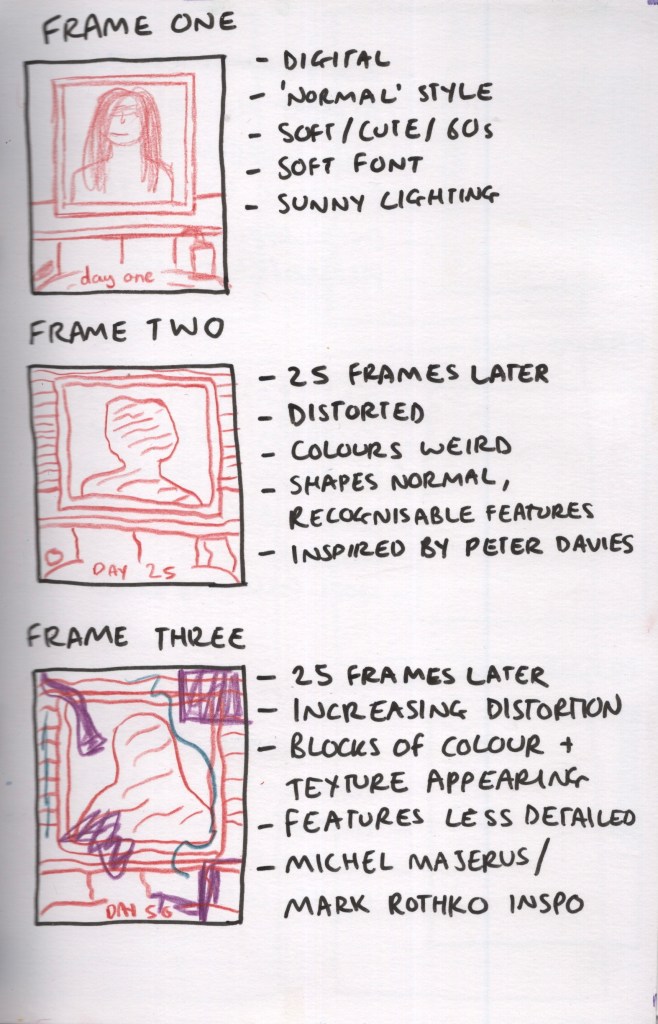 FRAME ONE
- DIGITAL
- 'NORMAL' STYLE
- SOFT/CUTE/60s
- SOFT FONT
- SUNNY LIGHTING
day one
FRAME TWO
- 25 FRAMES LATER
- DISTORTED
- COLOURS WEIRD
- SHAPES NORMAL,
RECOGNISABLE FEATURES
- INSPIRED BY PETER DAVIES
DAY 25
FRAME THREE
- 25 FRAMES LATER
- INCREASING DISTORTION
- BLOCKS OF COLOUR +
TEXTURE APPEARING
- FEATURES LESS DETAILED
- MICHEL MAJERUS/
MARK ROTHKO INSPO
DAY 56